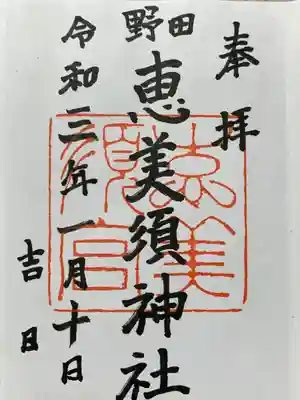 奉拝
野田
恵美須神社
令和三年一月十日
吉日